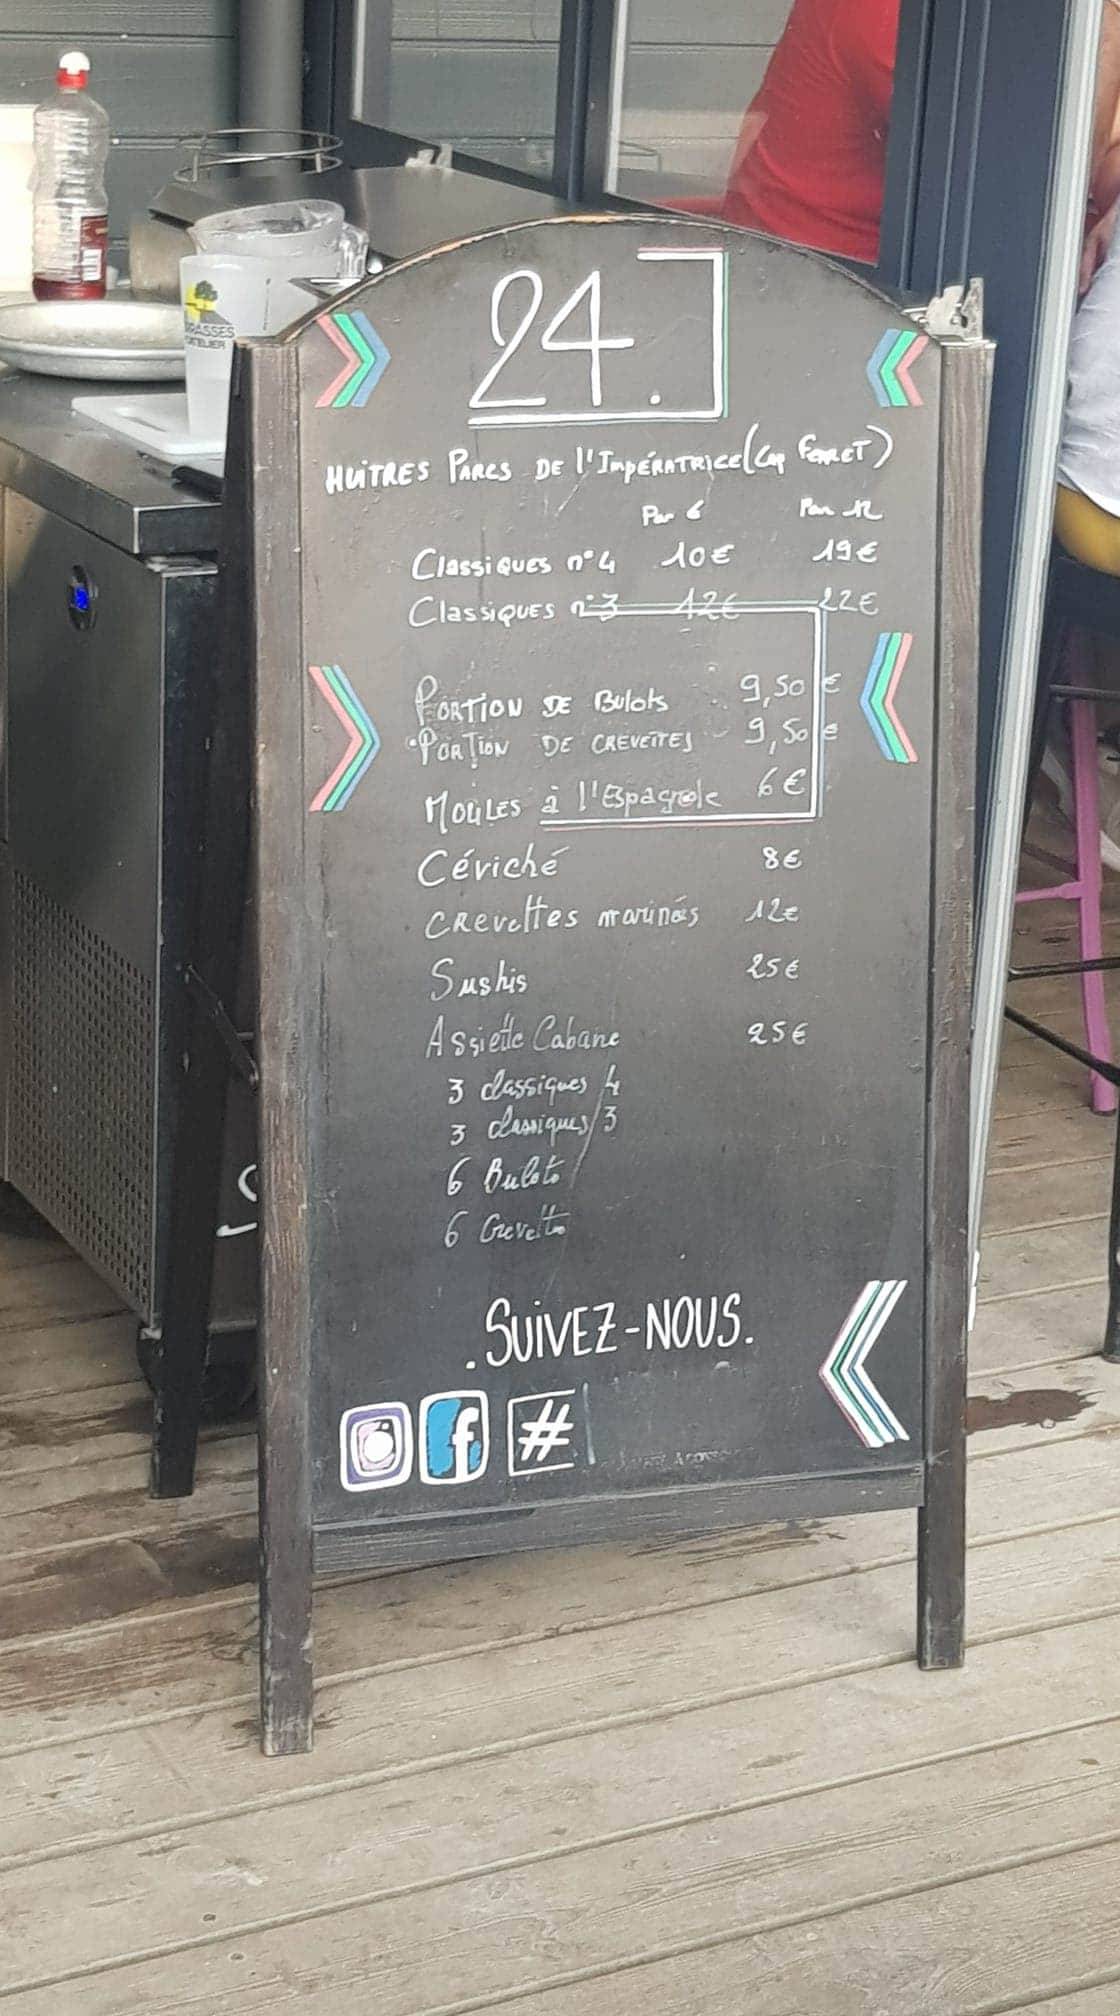 24.
HUÎTRES PARCS DE l'IMPÉRATRICE (Cap FERRET)
Par 6 Par 12
Classiques n°4 10€ 19€
Classiques n°3 12€ 22€
PORTION DE Bulots 9,50 €
PORTION DE CREVETTES 9,50 €
MOULES à l'Espagnole 6€
Céviché 8€
CREVETTES marinés 12€
Sushis 25€
Assiette Cabane 25€
3 classiques 4
3 classiques 3
6 Bulots
6 Crevettes
.SUiVEZ-NOUS.
f #